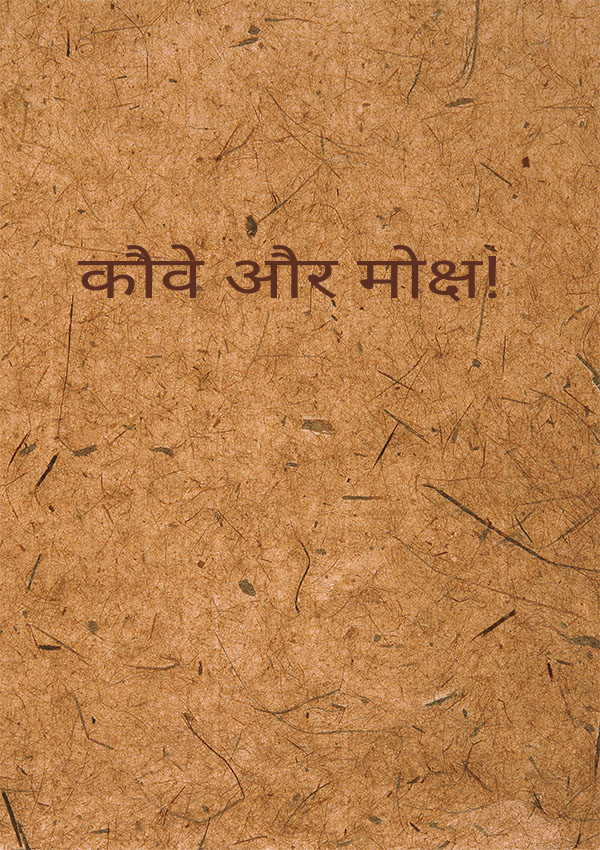 कौवे और मोक्ष!